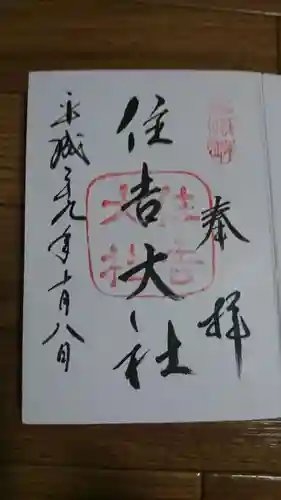 奉拝
住吉大社
住吉大社
平成二九年十月八日